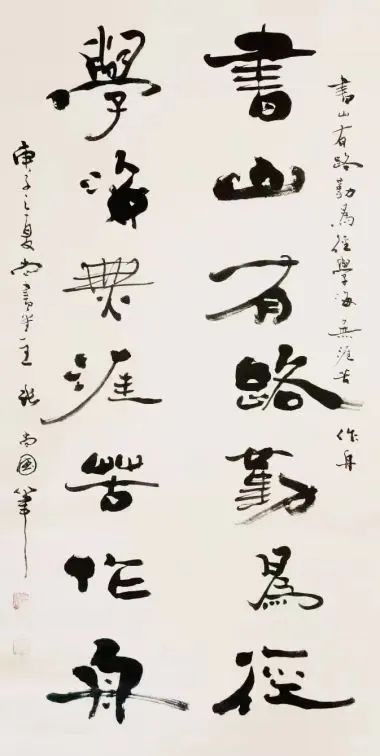 書山有路勤為徑學海無涯苦 作舟
書山有路勤為徑
學海無涯苦作舟
庚子之夏 張尚國筆